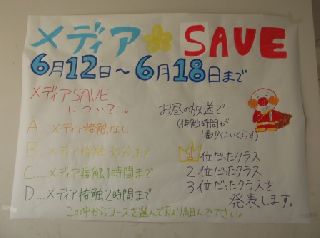 メディア SAVE
6月12日～6月18日まで
メディアSAVE
について…
A…メディア接触なし
B…メディア接触
C…メディア接触1時間まで
D…メディア接触2時間まで
この中からコースを選んで
お昼の放送で
1位だったクラス
2位だったクラス
3位だったクラスを
発表します。